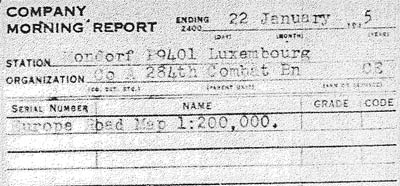 COMPANY
MORNING REPORT ENDING 2400 22 January 5
(DAY) (MONTH) (YEAR)
STATION Mondorf P9401 Luxembourg
ORGANIZATION Co A 284th Combat Bn CE
(CO, DET, ETC.) (PARENT UNIT) (ARM OR SERVICE)
SERIAL NUMBER NAME GRADE CODE
Europe Road Map 1:200,000.